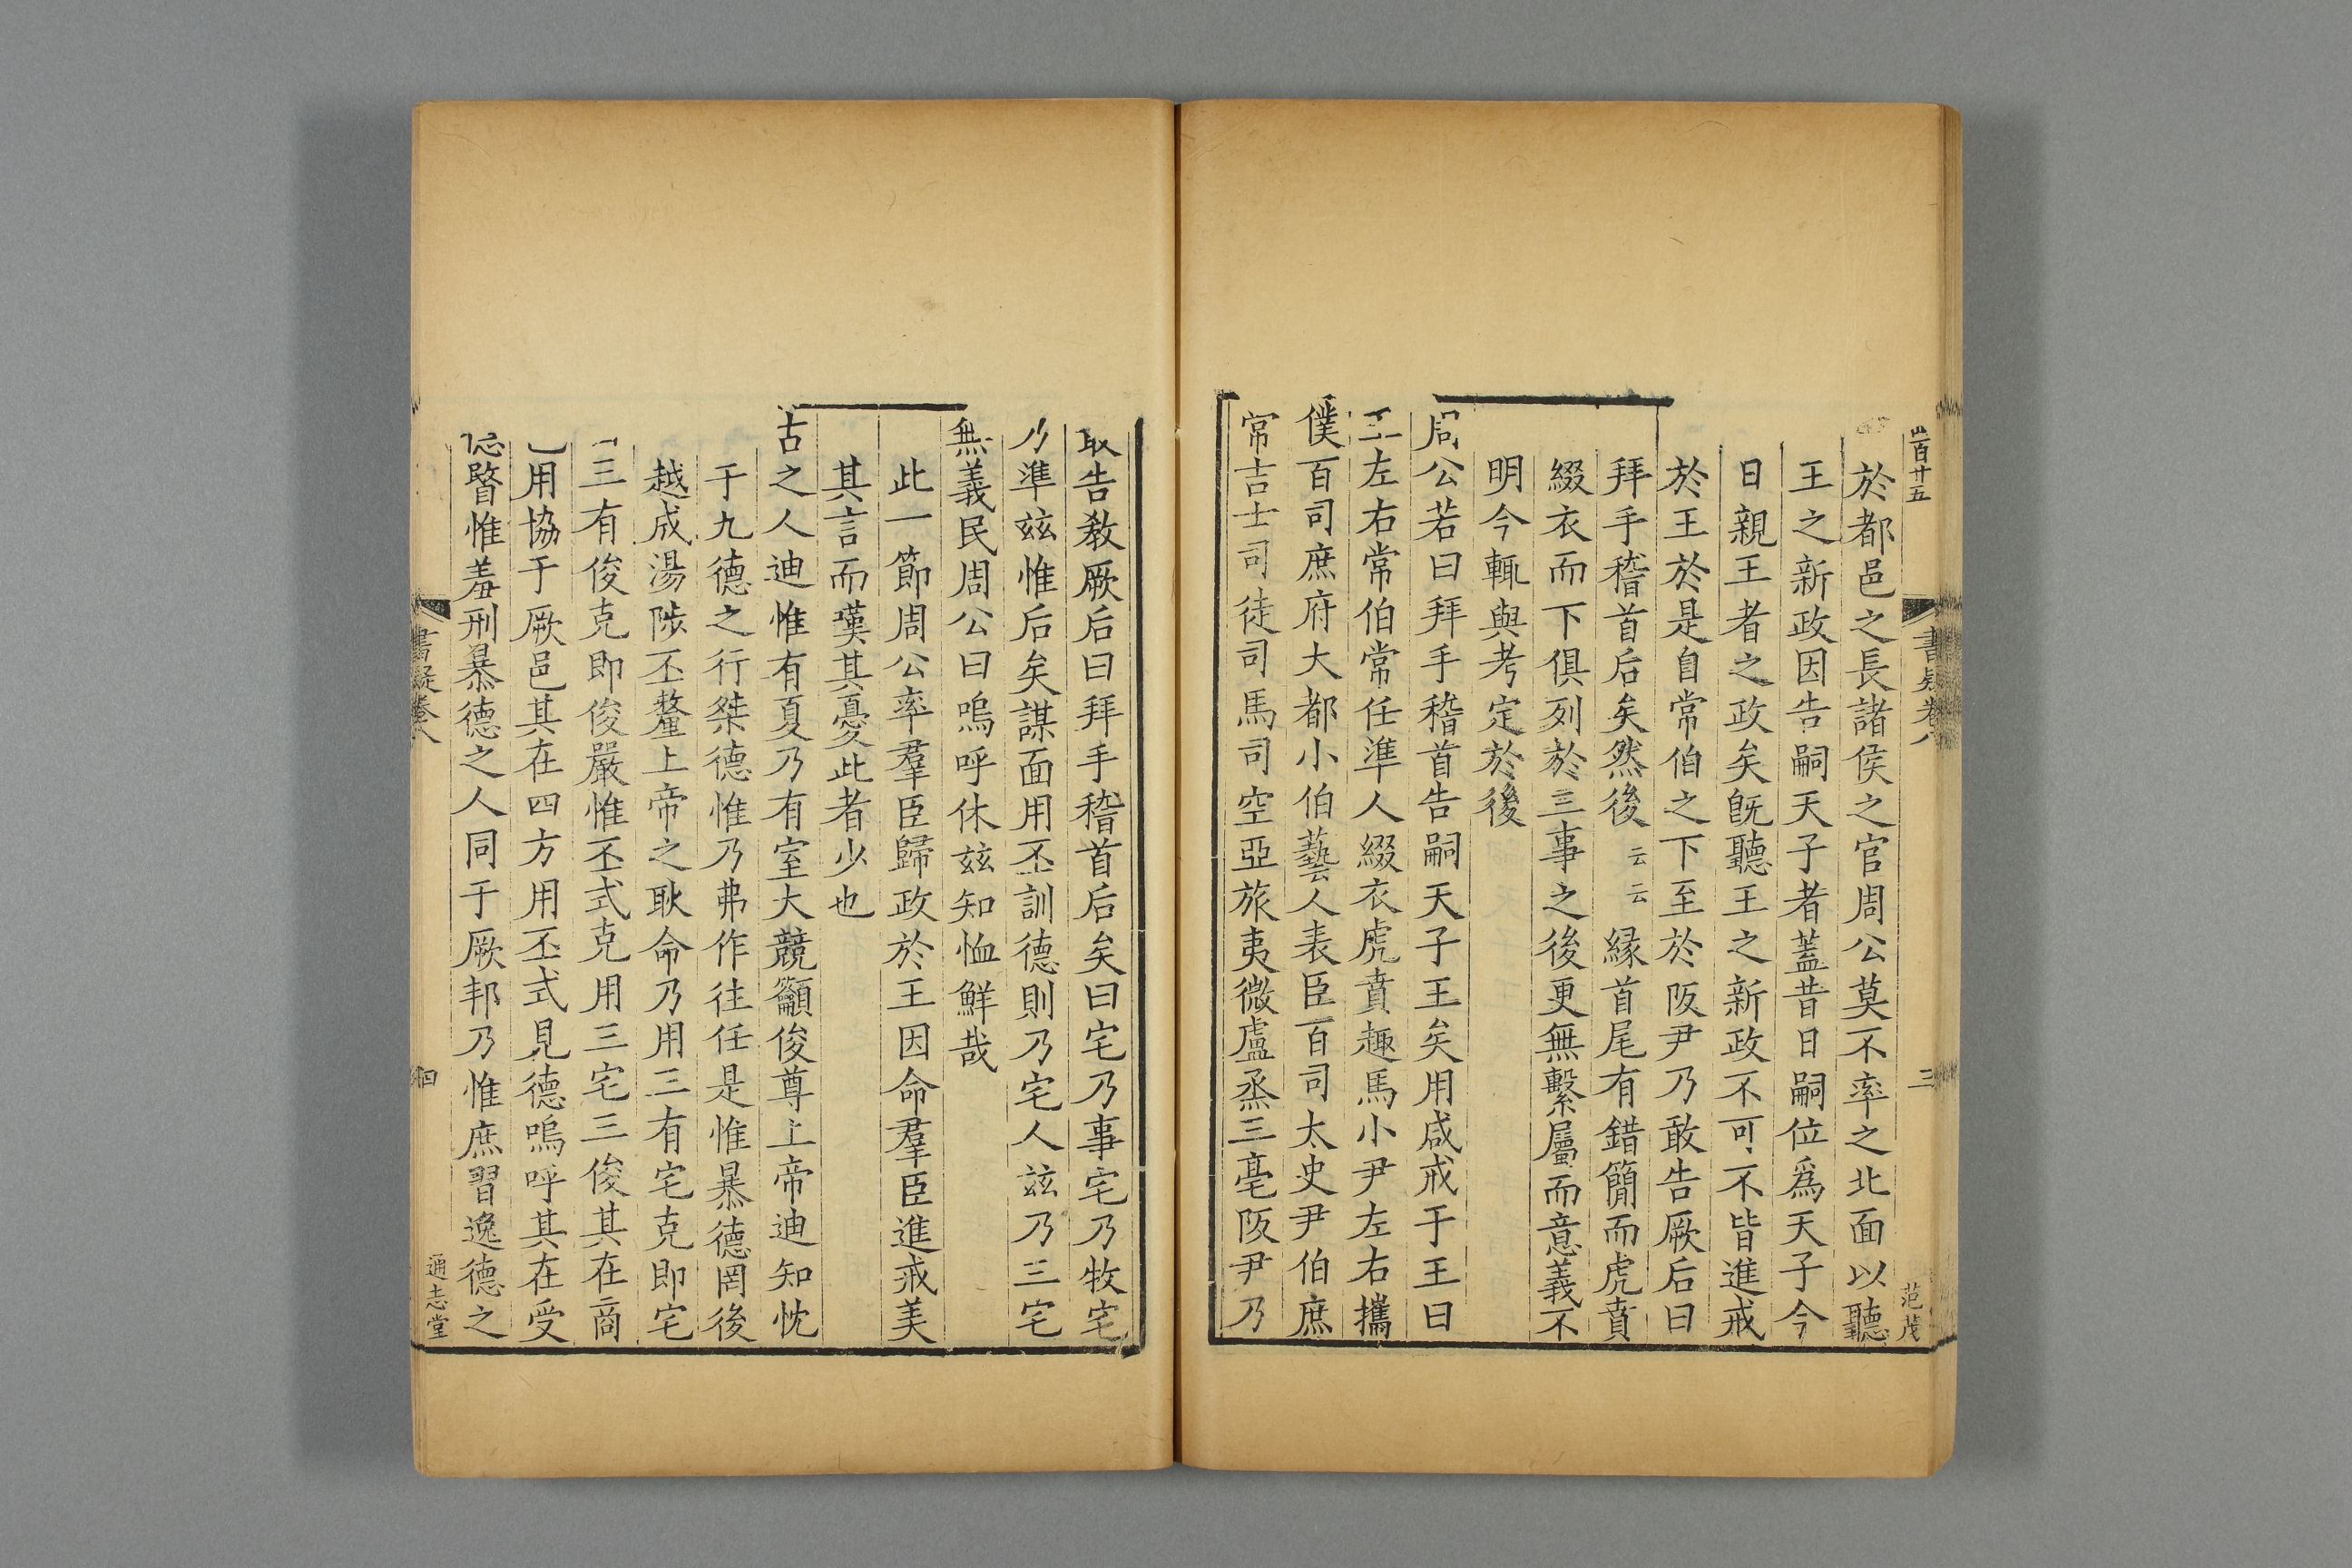 百廿五
書疑卷八
三
范茂
於都邑之長諸侯之官周公莫不率之北面以聽
王之新政因告嗣天子者蓋昔日嗣位爲天子今
日親王者之政矣旣聽王之新政不可不皆進戒
於王於是自常伯之下至於阪尹乃敢告厥后曰
拜手稽首后矣然後云云緣首尾有錯簡而虎賁
綴衣而下俱列於三事之後更無繫屬而意義不
明今輒與考定於後
周公若曰拜手稽首告嗣天子王矣用咸戒于王曰
王左右常伯常任準人綴衣虎賁趣馬小尹左右攜
僕百司庶府大都小伯藝人表臣百司太史尹伯庶
常吉士司徒司馬司空亞旅夷微盧烝三亳阪尹乃
敢告敎厥后曰拜手稽首后矣曰宅乃事宅乃牧宅
乃準玆惟后矣謀面用丕訓德則乃宅人玆乃三宅
無義民周公曰嗚呼休玆知恤鮮哉
此一節周公率羣臣歸政於王因命羣臣進戒美
其言而嘆其憂此者少也
古之人迪惟有夏乃有室大競籲俊尊上帝迪知忱
于九德之行桀德惟乃弗作往任是惟暴德罔後
越成湯陟丕釐上帝之耿命乃用三有宅克即宅
三有俊克即俊嚴惟丕式克用三宅三俊其在商
用協于厥邑其在四方用丕式見德嗚呼其在受
暋惟羞刑暴德之人同于厥邦乃惟庶習逸德之
書疑卷八
四
通志堂